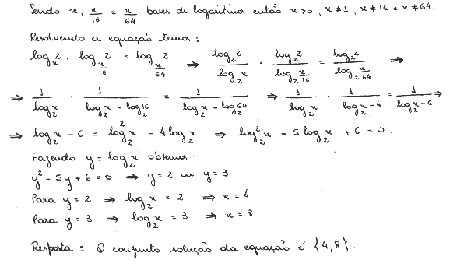 Sendo x, x/16 e x/64 bases de logaritmo então x>0, x≠1, x≠16 e x≠64.
Resolvendo a equação temos:
log_x 2 · log_{x/16} 2 = log_{x/64} 2 ⇒ log_2 2 / log_2 x · log_2 2 / log_2 x/16 = log_2 2 / log_2 x/64 ⇒
⇒ 1 / log_2 x · 1 / (log_2 x - log_2 16) = 1 / (log_2 x - log_2 64) ⇒ 1 / log_2 x · 1 / (log_2 x - 4) = 1 / (log_2 x - 6) ⇒
⇒ log_2 x - 6 = log_2² x - 4 log_2 x ⇒ log_2² x - 5 log_2 x + 6 = 0.
Fazendo y = log_2 x obtemos
y² - 5y + 6 = 0 ⇒ y = 2 ou y = 3
Para y = 2 ⇒ log_2 x = 2 ⇒ x = 4
Para y = 3 ⇒ log_2 x = 3 ⇒ x = 8
Resposta: O conjunto solução da equação é {4, 8}.